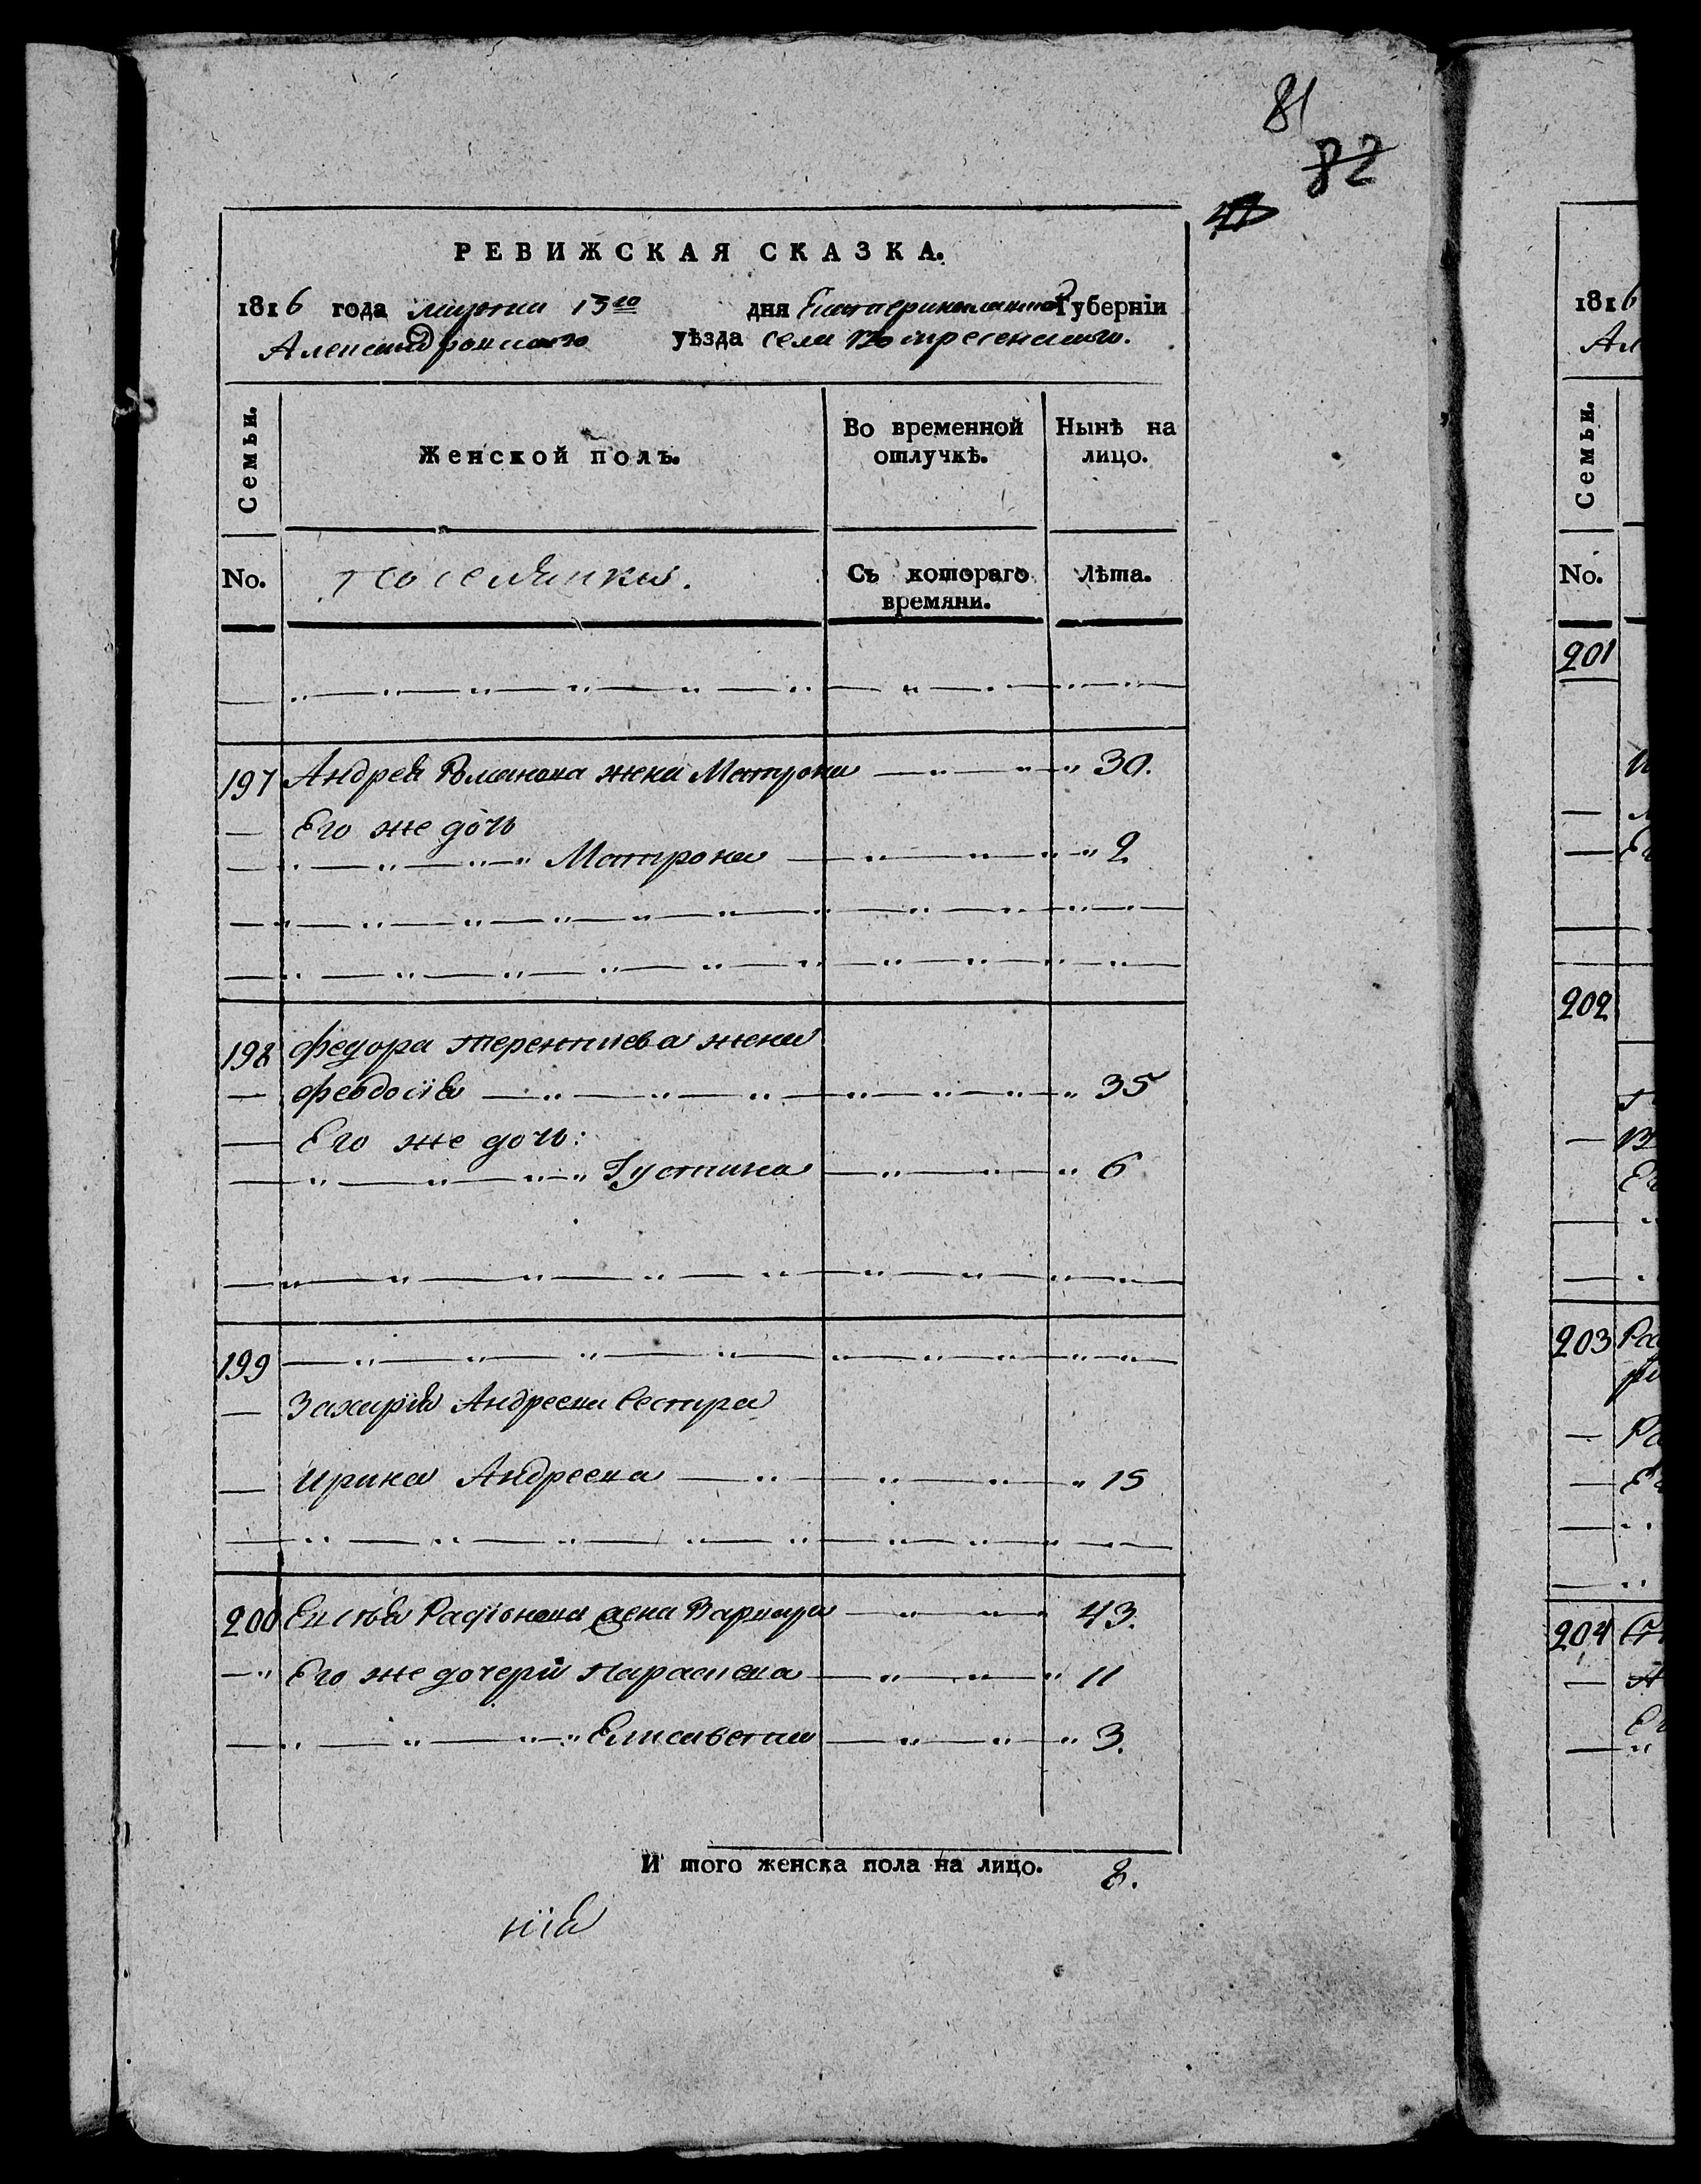 81
82
РЕВИЖСКАЯ СКАЗКА.
1816 года марта 13го дня Екатеринославской Губерніи
Александровскаго уѣзда села Воскресенскаго.
Семьи.
Женской полъ.
Во временной отлучкѣ.
Нынѣ на лицо.
No.
поселянки.
Съ котораго времяни.
Лѣта.
197 Андрея Романова жена Матрона 30.
Его же дочь
Матрона 2
198 Федора Терентиева жена
Феодосія 35
Его же дочь:
Іустина 6
199
Захарія Андреева Сестра
Ирина Андреева 15
200 Родіонова жена Варвара 43.
Его же дочери Параскева 11
Елисавета 3.
И того женска пола на лицо. 8.
нія
1816
Ал
Семьи.
No.
201
202
203 Ра
204